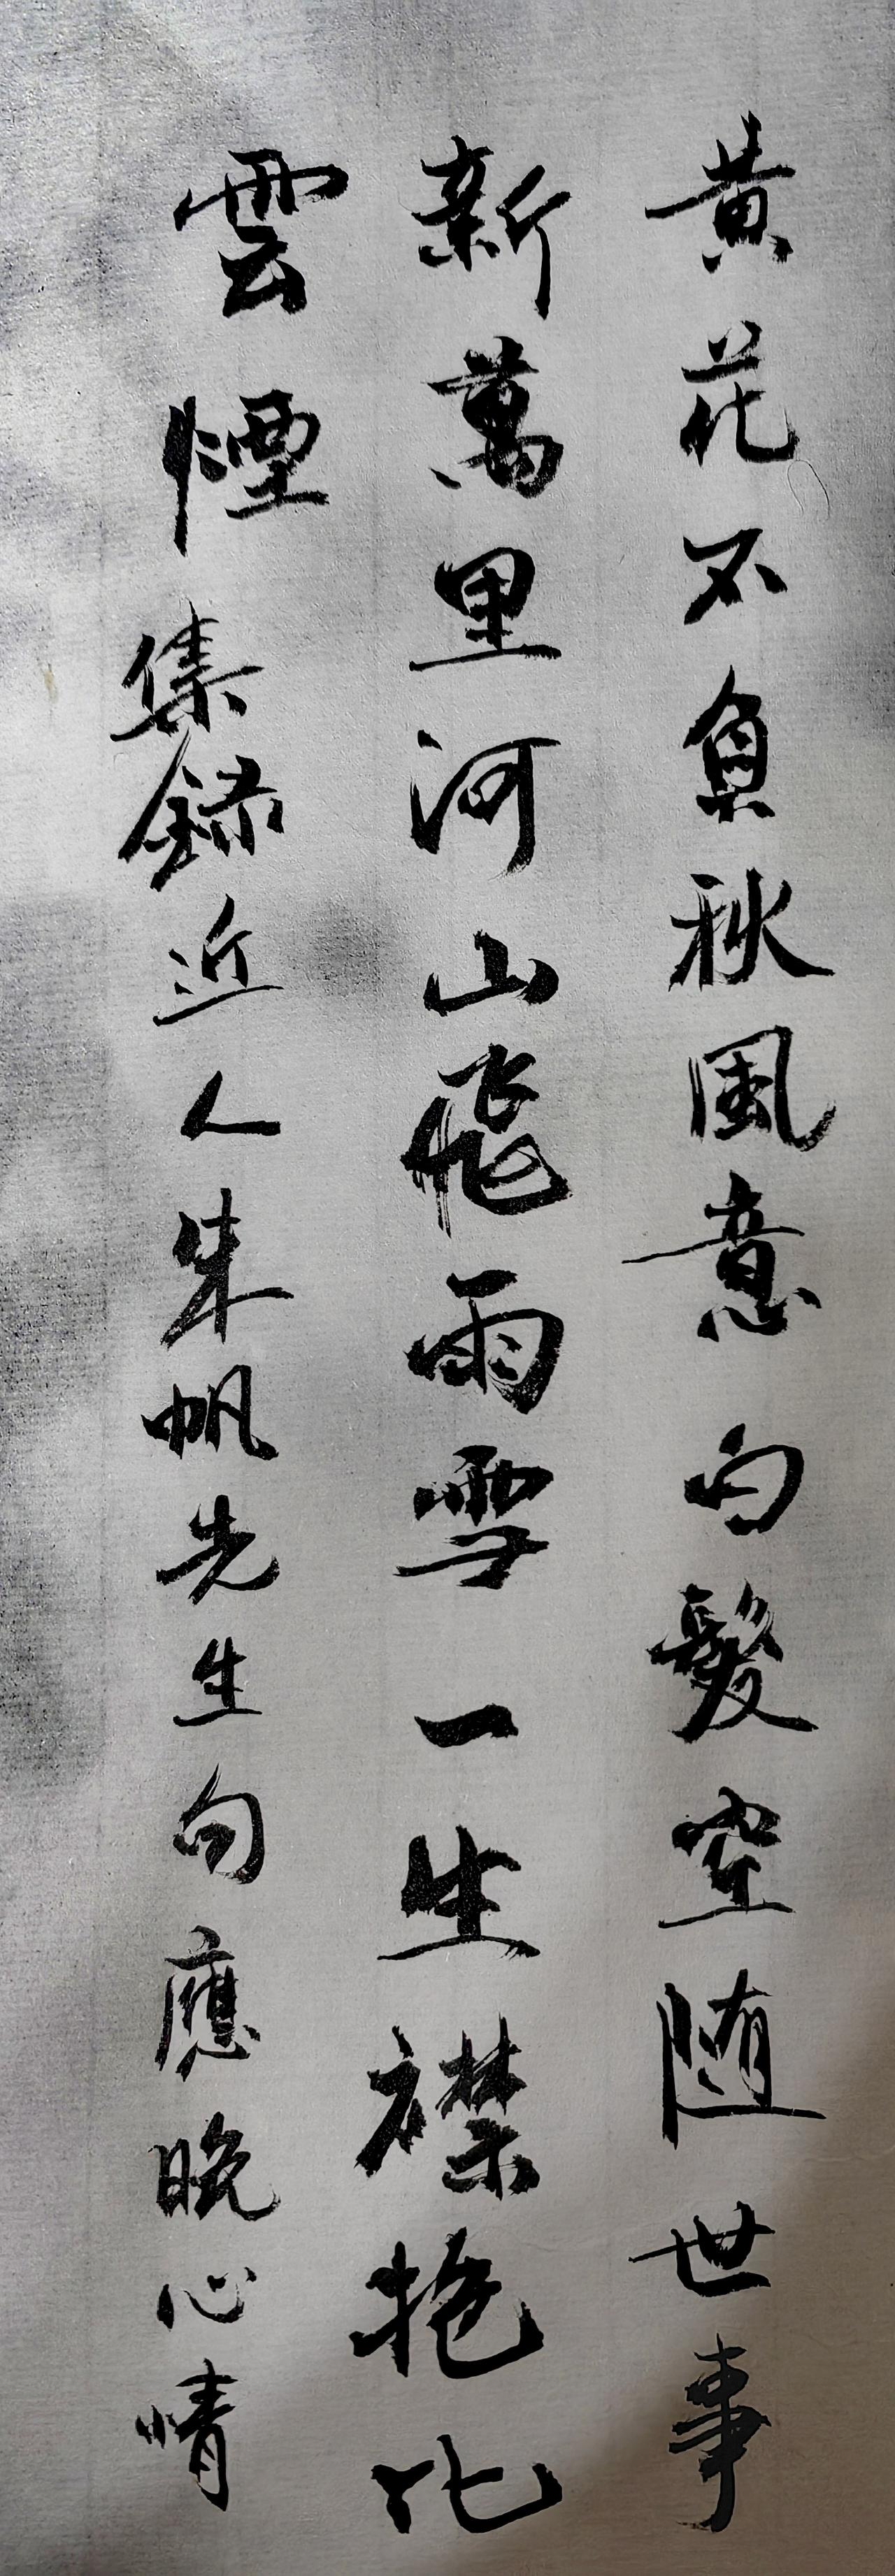 黄花不負秋風意白髮空随世事
新萬里河山飛雨雪一生襟抱化
雲煙集録近人朱帆先生句應晚心情